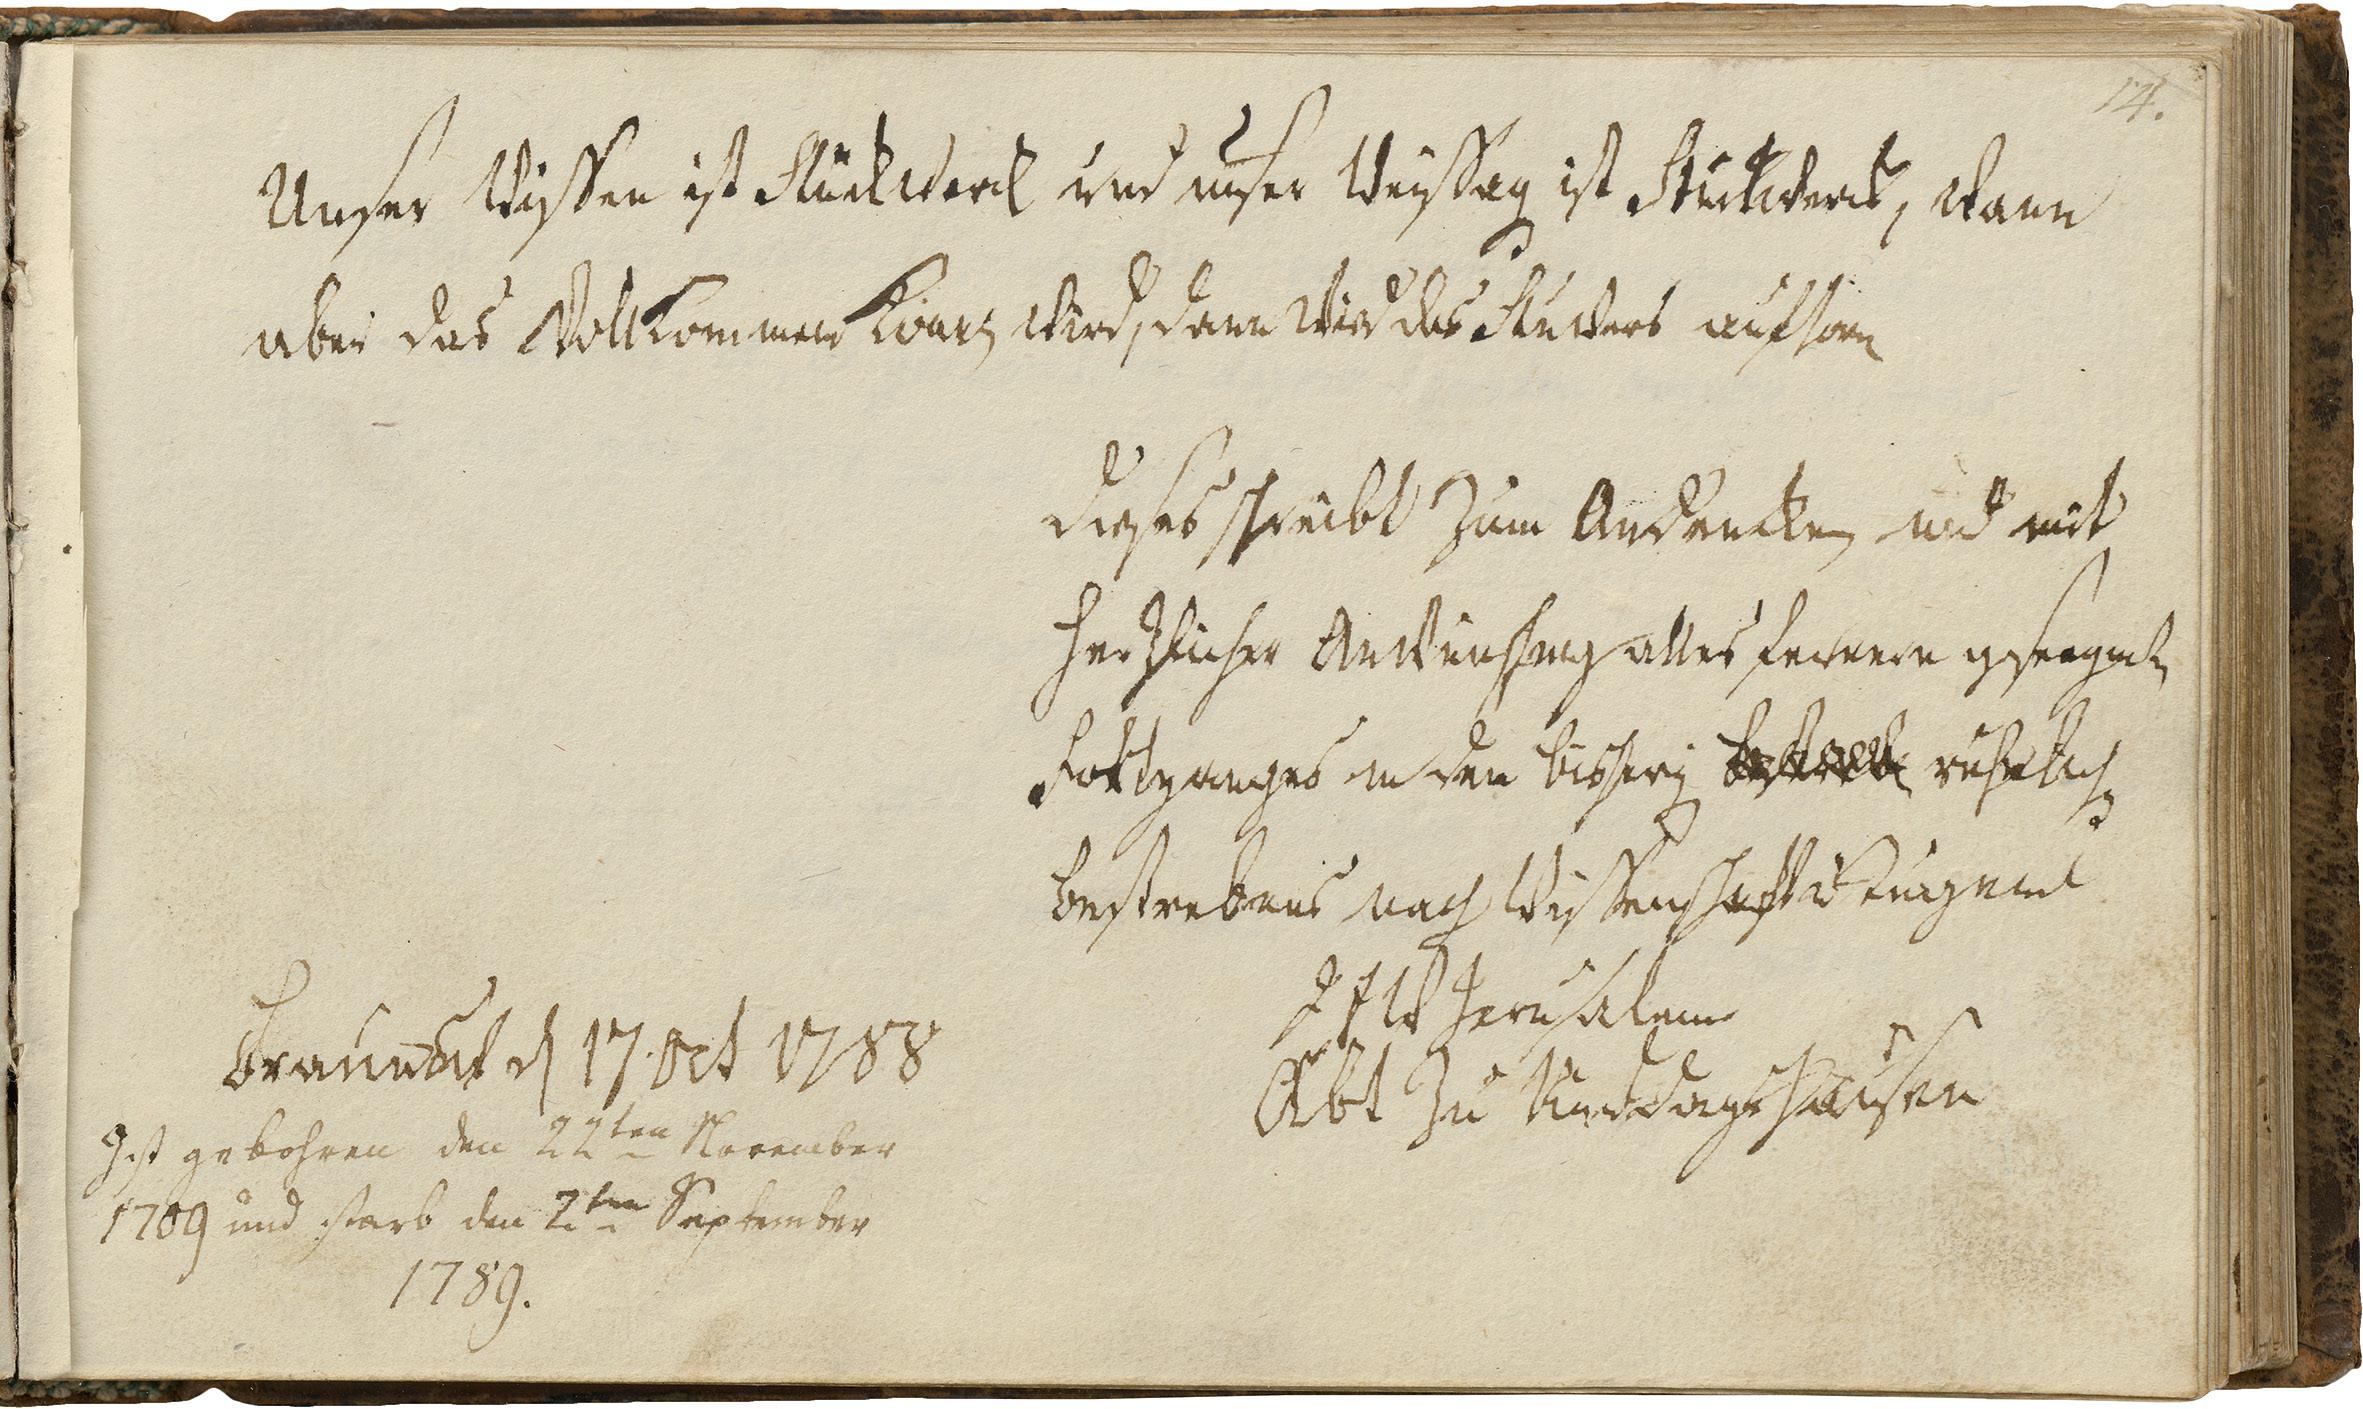 14.
Unser Wissen ist Stückwerck und unser Weissag ist Stückwerck, wann
aber das Vollkommene wird, dann wird das Stückwerck aufhören
dieses schreibt zum Andencken und mit
hertzlicher Anwünschung alles ferneren geseegneten
Fortganges in den bisherig rühmlich
Bestrebens nach Wissenschaft u Tugend
J F W Jerusalem
Abt zu Riddagshausen
Braunschw d 17. Oct 1788
Ist gebohren den 22ten November
1709 und starb den 2ten September
1789.